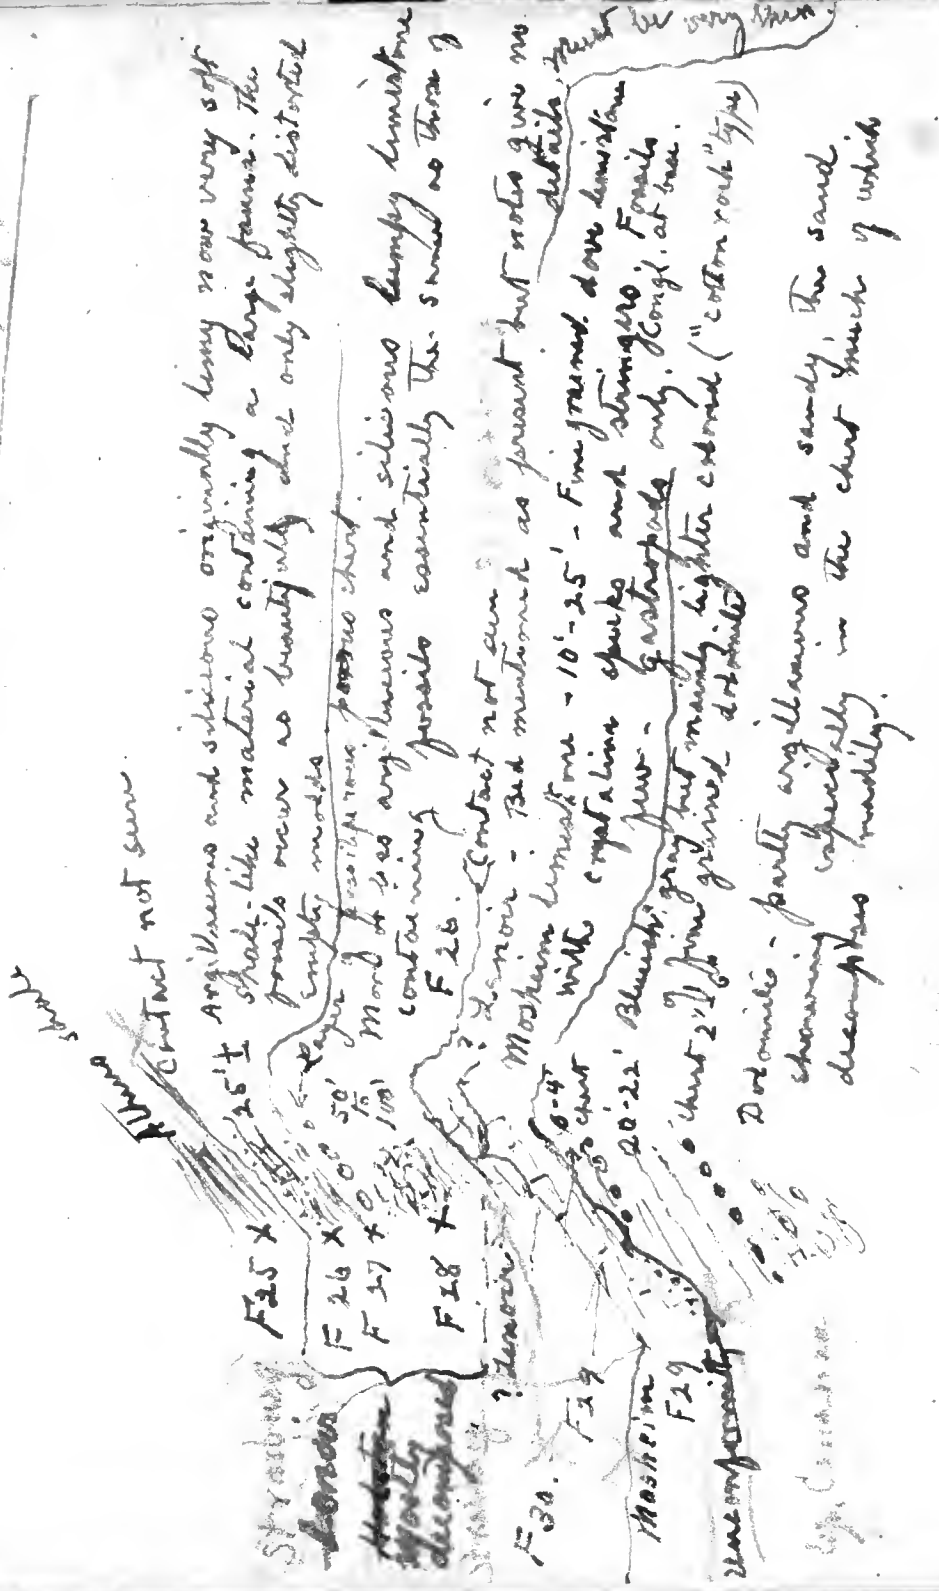 Athens
shale
Contact not seen
F25 X 25'± Argillaceous and siliceous originally limy now very soft
shale-like material containing a large fauna. The
fossils occur as beautifully and only slightly distorted
empty molds
Layer fossiliferous porous chert
F 26 X 50'
F 27 X to 100' Most of it is argillaceous and siliceous lumpy limestone
containing fossils essentially the same as those of
F 28 X F 26.
Lenoir
mostly
decomposed
Contact not seen
? Lenoir ? Lenoir - Bed mentioned as present but notes give no
details. must be very thin.
F 30.
Mosheim limestone - 10'-25' - Fine grained dove limestone
with crystaline specks and stringers. Fossils
few - gastropods only. Congl. at base.
F29
0-4'
chert
20'-22' Blueish gray but mainly lighter colored ("cotton rock" type)
chert 2" fine grained dolomite
Mosheim
F29
unconformity
Dolomite - partly argillaceous and sandy, the sand
showing especially in the chert much of which
decomposes readily.